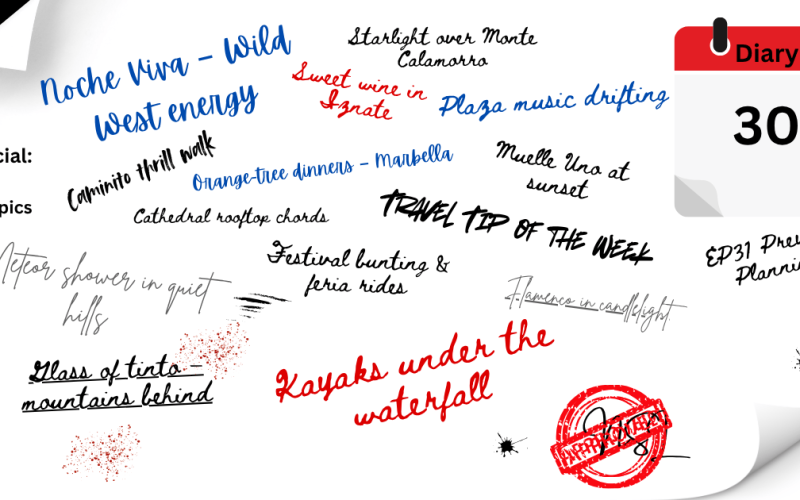 Noche Viva – Wild
West energy
Starlight over Monte
Calamorro
Sweet wine in
Iznate
Plaza music drifting
Diary
30
cial:
pics
Caminito thrill walk
Orange-tree dinners – Marbella
Muelle Uno at
sunset
Cathedral rooftop chords
TRAVEL TIP OF THE WEEK
EP31 Prev
Plannin
Meteor shower in quiet
hills
Festival bunting &
feria rides
Flamenco in candlelight.
Glass of tinto –
mountains behind
Kayaks under the
waterfall